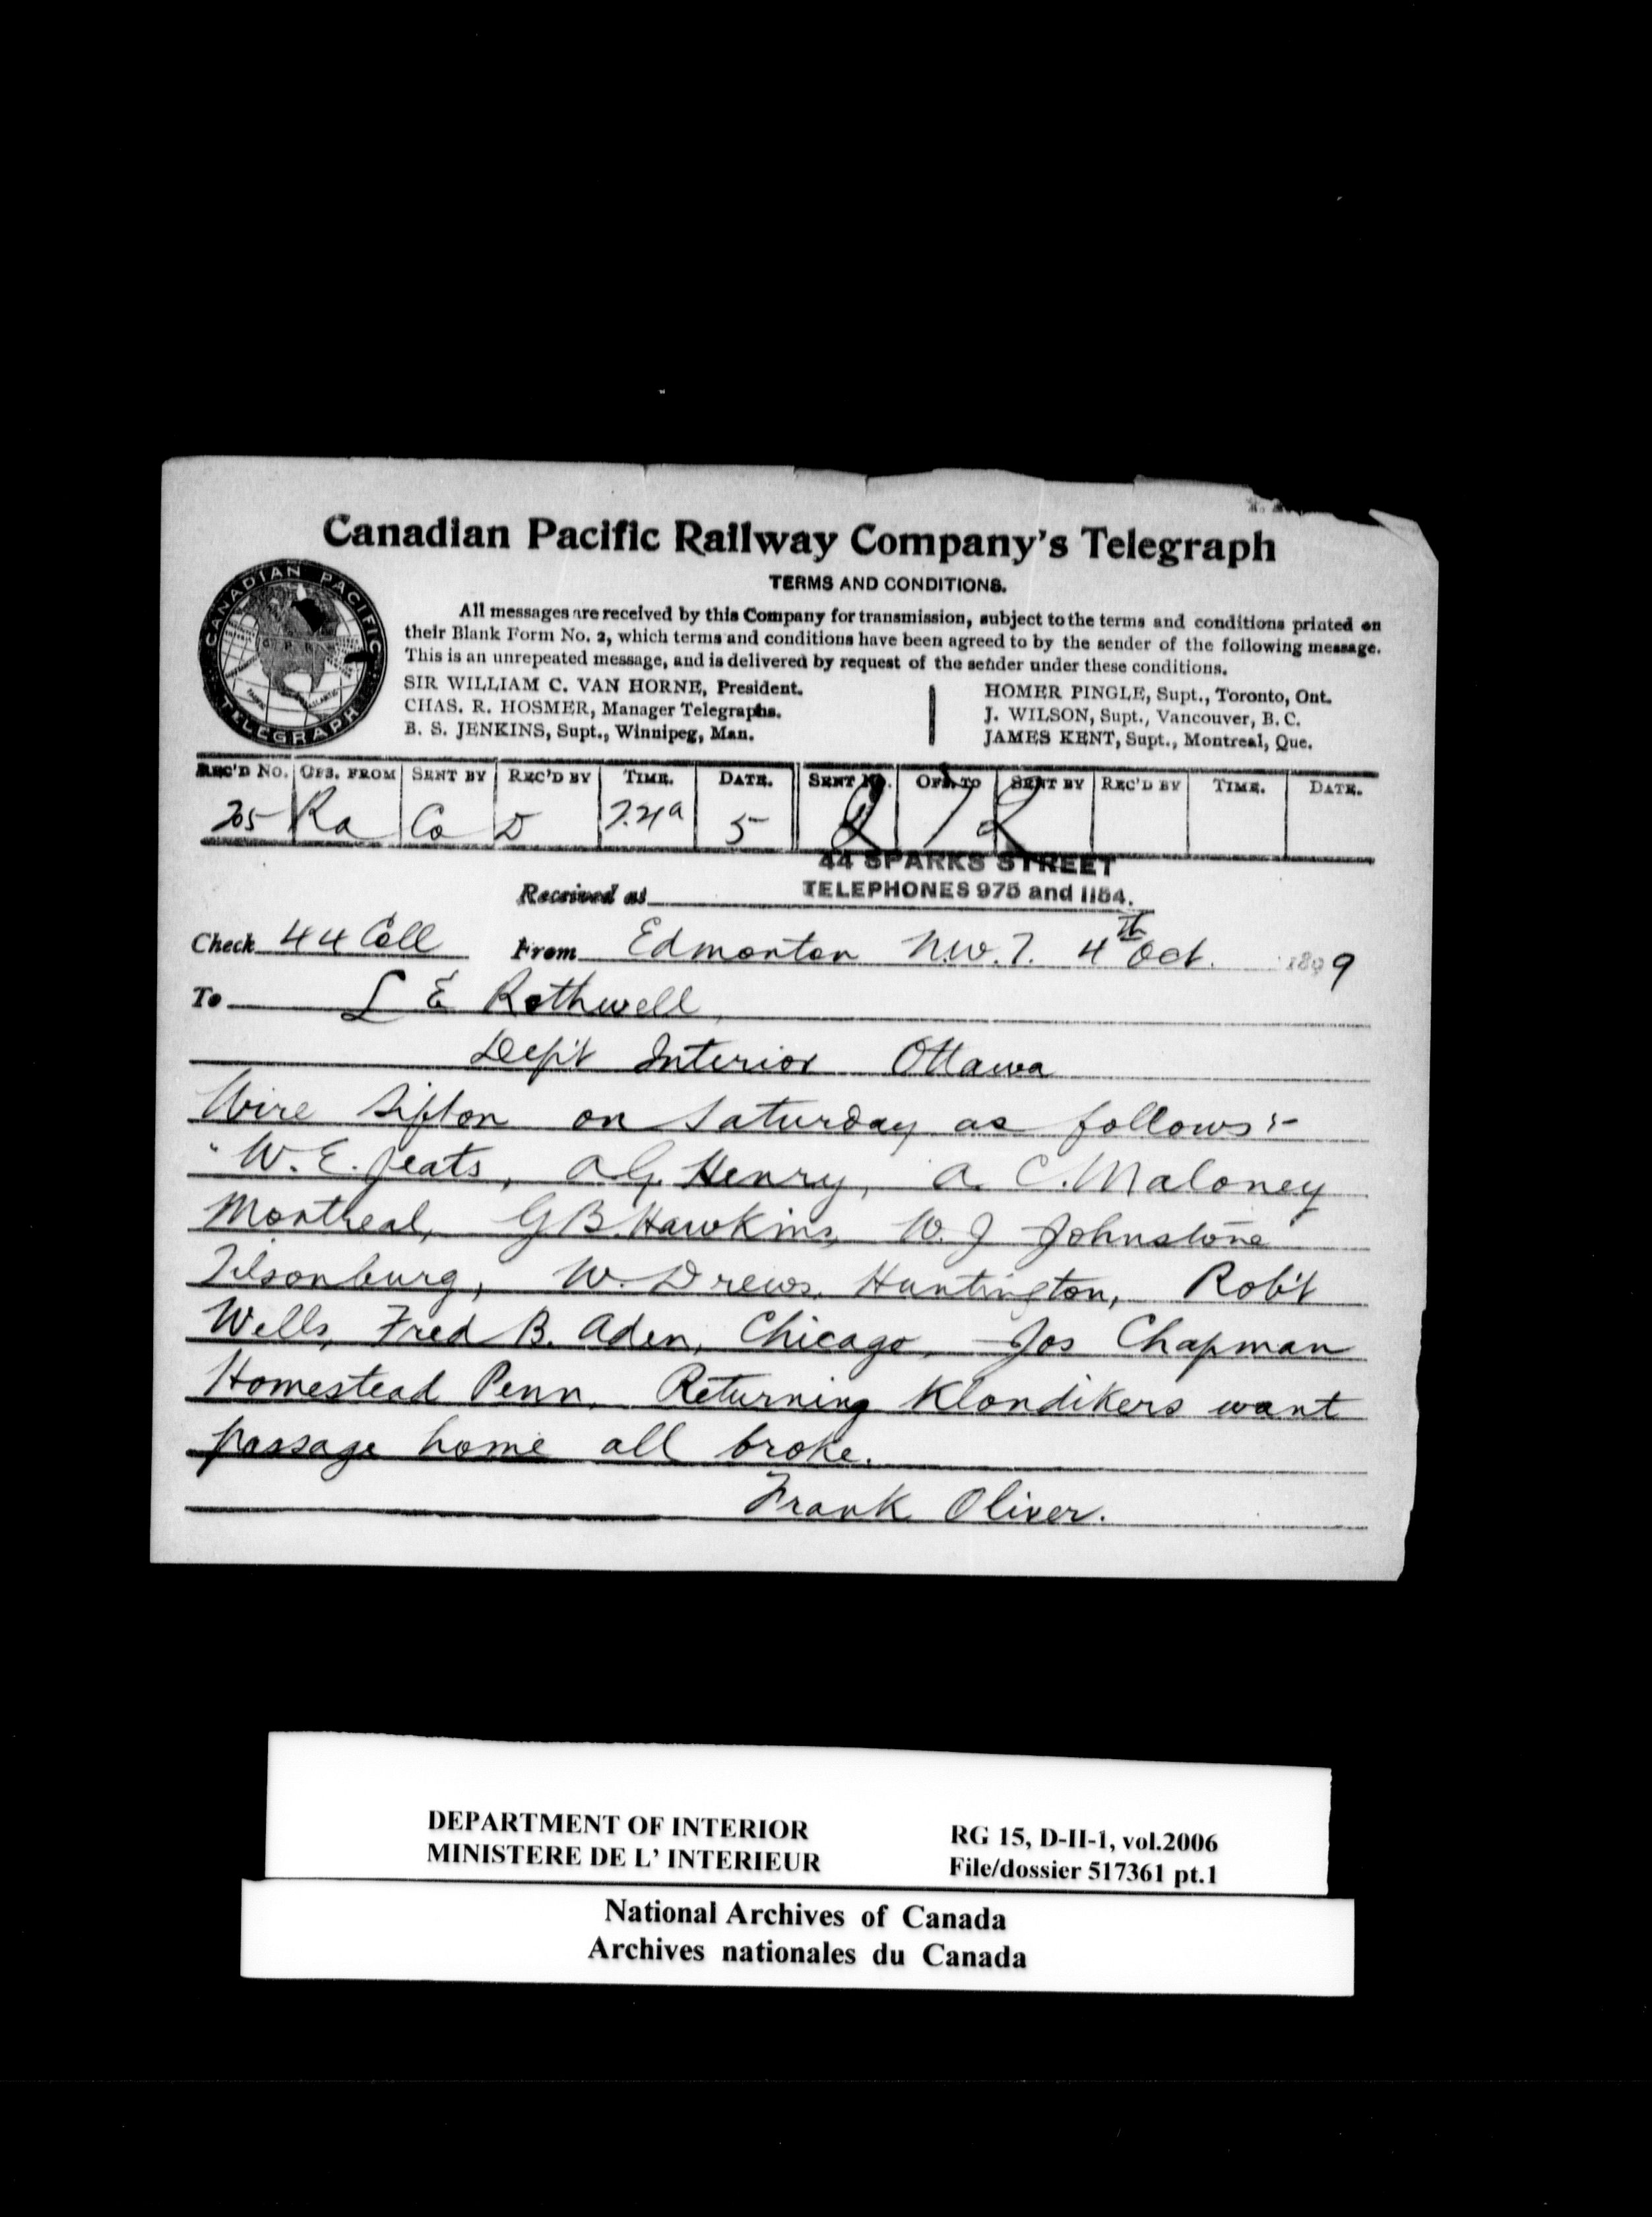 Canadian Pacific Railway Company's Telegraph
TERMS AND CONDITIONS.
All messages are received by this Company for transmission, subject to the terms and conditions printed on
their Blank Form No. 2, which terms and conditions have been agreed to by the sender of the following message.
This is an unrepeated message, and is delivered by request of the sender under these conditions.
SIR WILLIAM C. VAN HORNE, President.
CHAS. R. HOSMER, Manager Telegraphs.
B. S. JENKINS, Supt., Winnipeg, Man.
HOMER PINGLE, Supt., Toronto, Ont.
J. WILSON, Supt., Vancouver, B. C.
JAMES KENT, Supt., Montreal, Que.
CANADIAN PACIFIC
C. P. R.
TELEGRAPH
REC'D No. OFS. FROM SENT BY REC'D BY TIME. DATE. SENT No. OFS. TO SENT BY REC'D BY TIME. DATE.
205 Ra Co D 5
44 SPARKS STREET
Received at TELEPHONES 975 and 1154.
Check 44 Coll From Edmonton N.W.T. 4th Oct. 1899
To L E Rothwell
Dep't Interior Ottawa
Wire Sifton on Saturday as follows:-
"W. E. Jeats, A G. Henry, A. C. Maloney
Montreal, G B. Hawkins, W. J Johnstone
Tilsonburg, W. Drews, Huntington, Rob't
Wells, Fred B. Aden, Chicago, Jos Chapman
Homestead Penn. Returning Klondikers want
passage home all broke.
Frank Oliver.
DEPARTMENT OF INTERIOR
MINISTERE DE L' INTERIEUR
RG 15, D-II-1, vol.2006
File/dossier 517361 pt.1
National Archives of Canada
Archives nationales du Canada